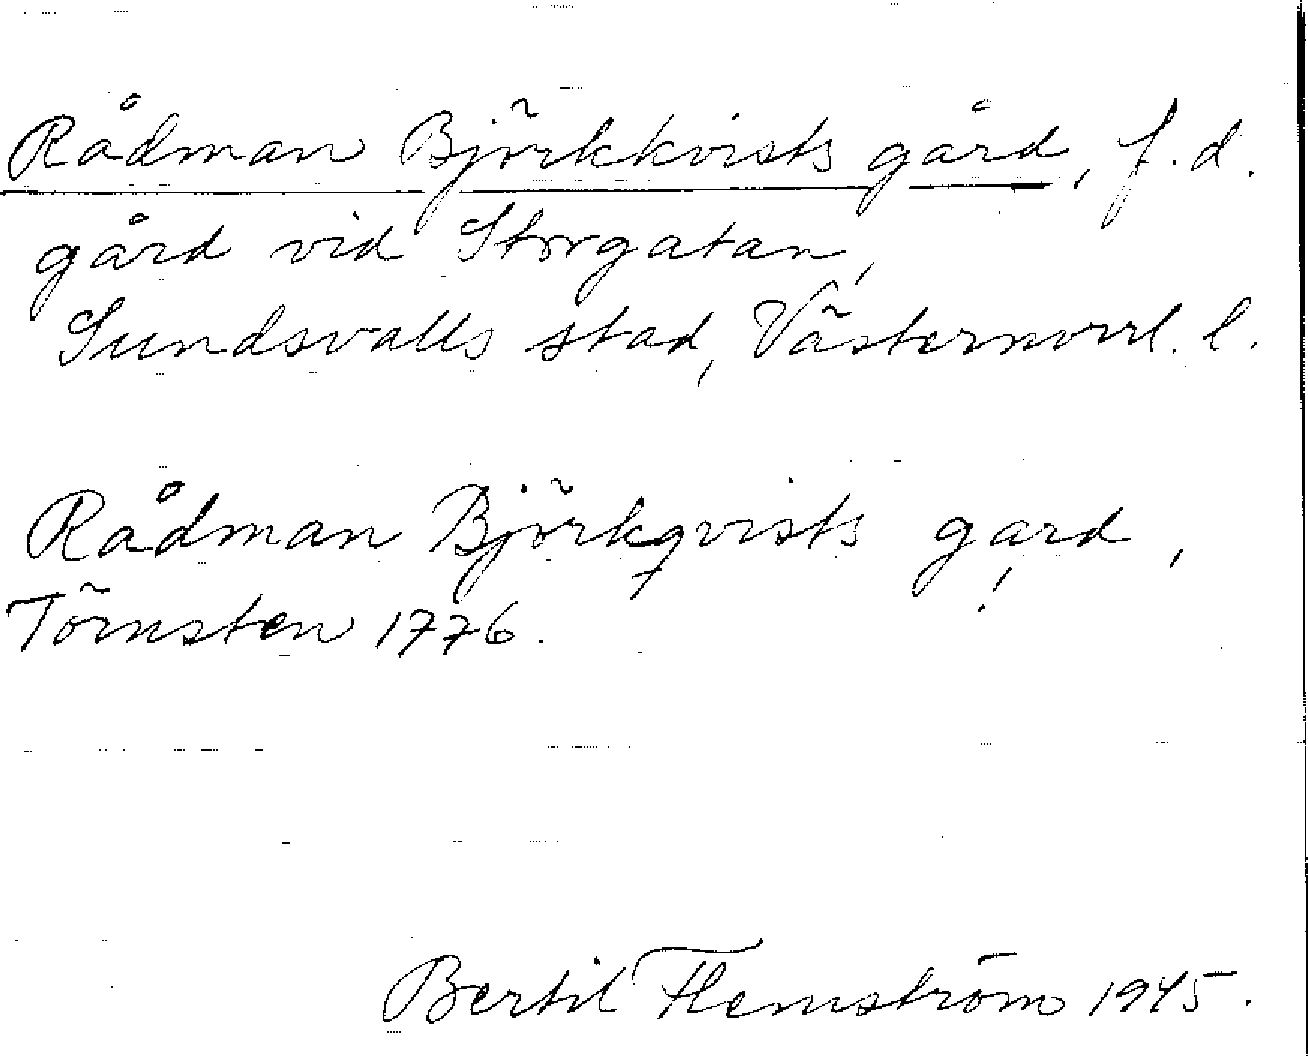 Rådman Björkkvists gård, f.d.
gård vid Storgatan,
Sundsvalls stad, Västernorrl. l.
Rådman Björkqvists gard,
!
Törnsten 1776.
Bertil Flemström 1945.